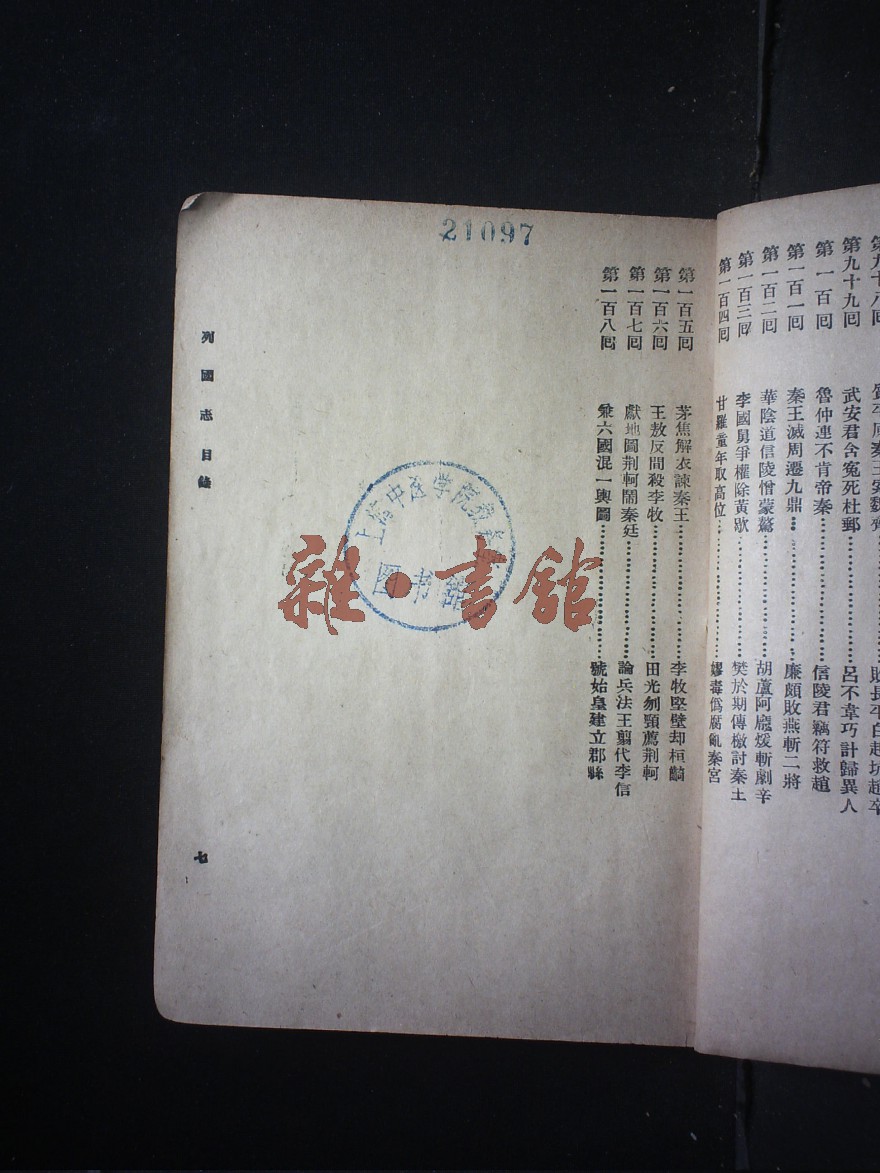 第九十九回 武安君含冤死杜郵 呂不韋巧計歸異人
第一百回 魯仲連不肯帝秦 信陵君竊符救趙
第一百一回 秦王滅周遷九鼎 廉頗敗燕斬二將
第一百二回 華陰道信陵憎蒙驁 胡蘆阿龐煖斬劇辛
第一百三回 李國舅爭權除黃歇 樊於期傳檄討秦王
第一百四回 甘羅童年取高位 嫪毒僞腐亂秦宮
第一百五回 茅焦解衣諫秦王 李牧堅壁却桓齮
第一百六回 王敖反間殺李牧 田光刎頸薦荆軻
第一百七回 獻地圖荆軻鬧秦廷 論兵法王翦代李信
第一百八回 兼六國混一輿圖 號始皇建立郡縣
列國志目錄
七
21097
上海中医学院
图书馆
雜·書館